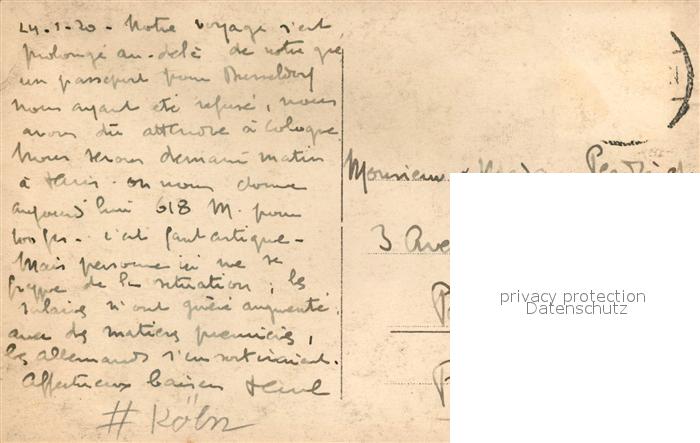 24-1-20 - Notre voyage s'est
prolongé au-delà de notre gré
un passeport pour Dusseldorf
nous ayant été refusé, nous
avons dû attendre à Cologne
Nous serons demain matin
à on nous donne
aujourd'hui 618 M. pour
100 frs. c'est fantastique -
Mais personne ici ne se
frappe de la situation ; les
salaires n'ont guère augmenté.
avec des matières premières,
les allemands s'en sortiraient.
Affectueux baisers
# Köln
Monsieur
3 Ave
privacy protection
Datenschutz